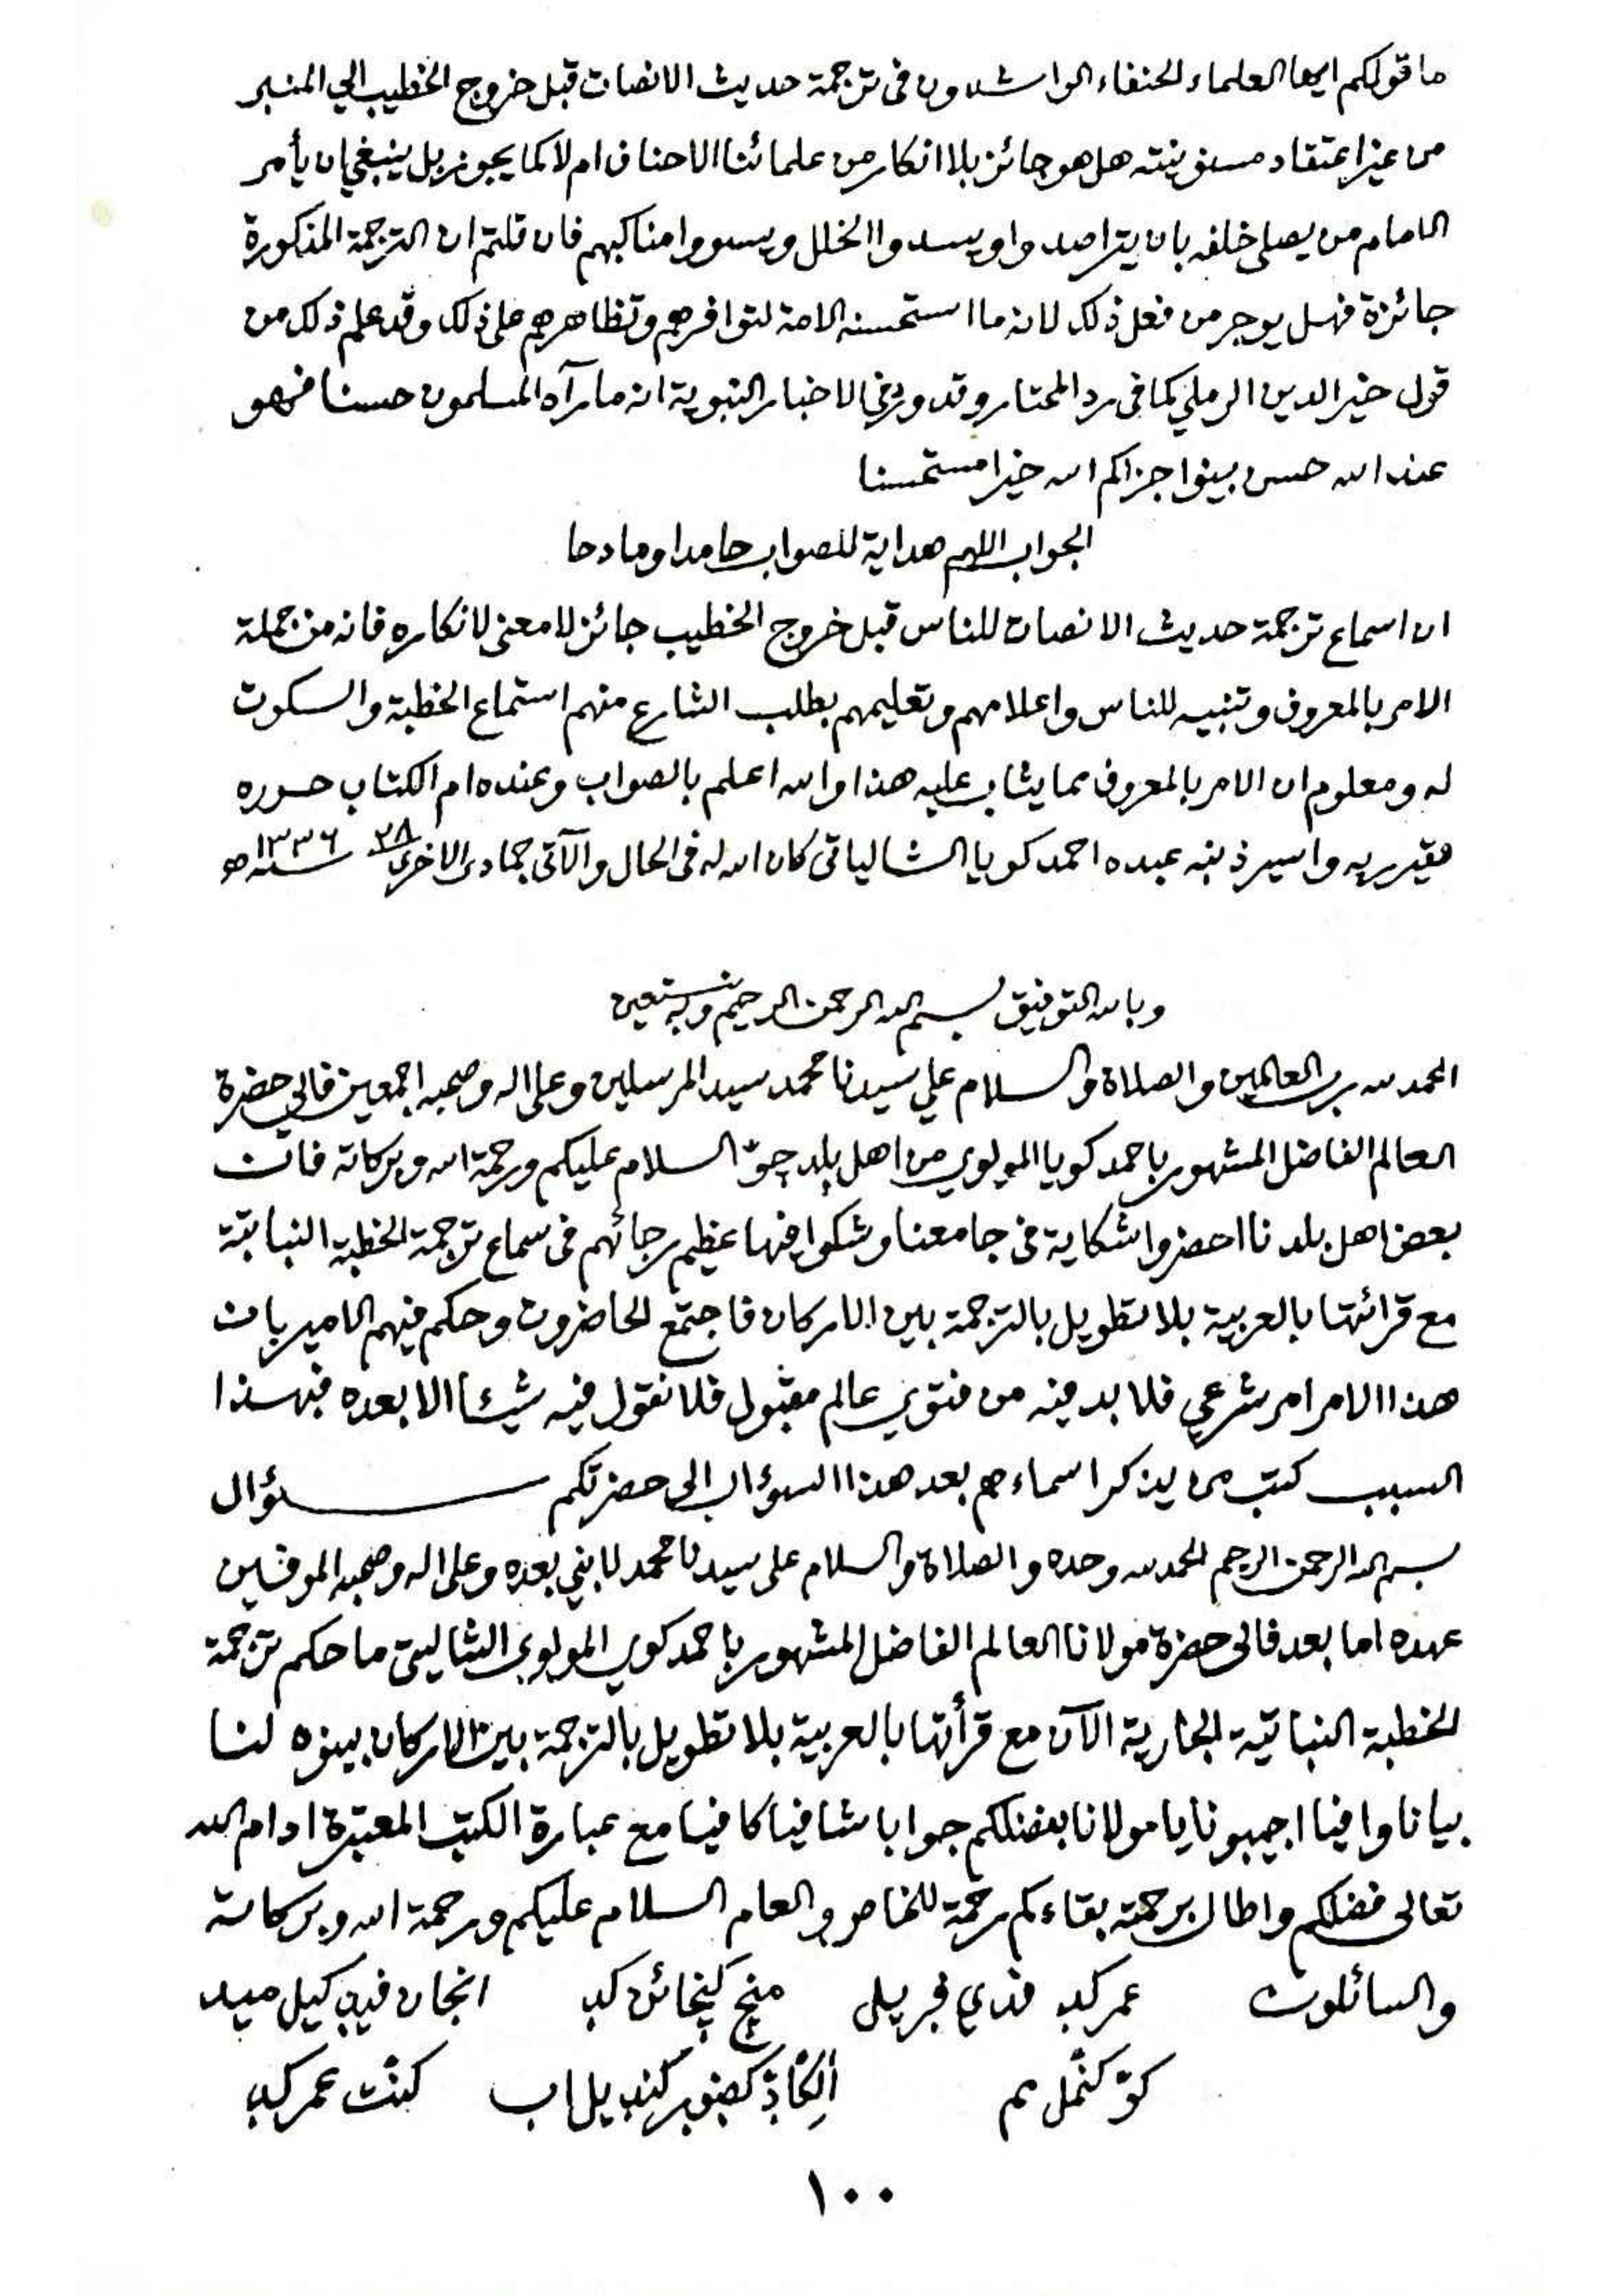 ما قولكم ايها العلماء الحنفاء الراشدون في ترجمة حديث الانصات قبل خروج الخطيب الي المنبر
من غير اعتقاد مسنونيته هل هو جائز بلا انكار من علمائنا الاحناف ام لا كما يجوز بل ينبغي ان يأمر
الامام من يصلي خلفه بان يتراصدوا ويسدوا الخلل ويسووا مناكبهم فان قلتم ان الترجمة المذكورة
جائزة فهل يوجر من فعل ذلك لانه ما استحسنه الامة لتوافرهم وتظاهرهم على ذلك وقد علم ذلك من
قول خير الدين الرملي كما في رد المحتار وقد ورد في الاخبار النبوية انه ما رآه المسلمون حسنا فهو
عند الله حسن بينوا جزاكم الله خيرا مستحسنا
الجواب اللهم هداية للصواب حامدا ومادحا
ان اسماع ترجمة حديث الانصات للناس قبل خروج الخطيب جائز لا معنى لانكاره فانه من جملة
الامر بالمعروف وتنبيه للناس واعلامهم وتعليمهم بطلب الشارع منهم استماع الخطبة والسكوت
له ومعلوم ان الامر بالمعروف مما يثاب عليه هذا والله اعلم بالصواب وعنده ام الكتاب حرره
فقير ربه واسير ذنبه عبده احمد كويا الشالياتي كان الله له في الحال والآتي جمادى الاخرى ٢٨ سنة ١٣٣٦ ه
وبالله التوفيق بسم الله الرحمن الرحيم وبه نستعين
الحمد لله رب العالمين والصلاة والسلام علي سيدنا محمد سيد المرسلين وعلى اله وصحبه اجمعين فالي حضرة
العالم الفاضل المشهور باحمد كويا المولوي من اهل بلد چو السلام عليكم ورحمة الله وبركاته فان
بعض اهل بلدنا احضروا شكاية في جامعنا وشكوا فيها عظيم رجائهم في سماع ترجمة الخطبة النباتية
مع قرائتها بالعربية بلا تطويل بالترجمة بين الاركان فاجتمع الحاضرون وحكم فيهم الامير بان
هذا الامر امر شرعي فلا بد فيه من فتوي عالم مقبول فلا نقول فيه شيئا الا بعده فبهذا
السبب كتب من يذكر اسماءهم بعد هذا السؤال الى حضرتكم ســـؤال
بسم الله الرحمن الرحيم الحمد لله وحده والصلاة والسلام على سيدنا محمد لا نبي بعده وعلى اله وصحبه الموفين
عهده اما بعد فالى حضرة مولانا العالم الفاضل المشهور باحمد كوي المولوي الشاليتي ما حكم ترجمة
الخطبة النباتية الجارية الآن مع قرأتها بالعربية بلا تطويل بالترجمة بين الاركان بينوه لنا
بيانا وافيا اجيبونا يا مولانا بفضلكم جوابا شافيا كافيا مع عبارة الكتب المعتبرة ادام الله
تعالى فضلكم واطال برحمته بقاءكم رحمة للخاص والعام السلام عليكم ورحمة الله وبركاته
والسائلون عمر كد
كو كنمل
كنت عمر كد
١٠٠